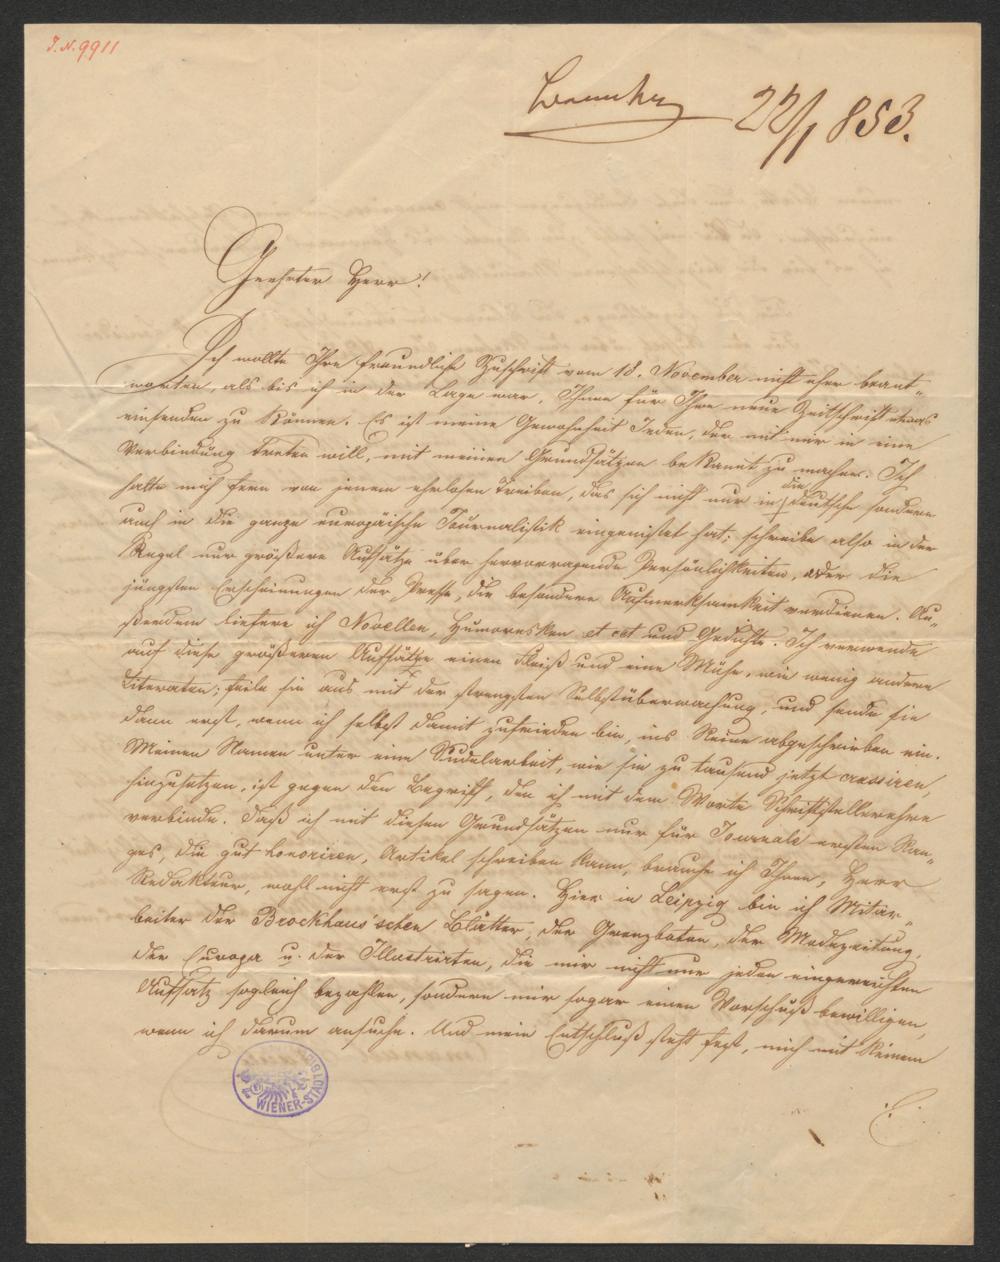 J.N. 9911
22/1 853.
Geehrter Herr!
Ich wollte Ihre freundliche Zuschrift vom 18. November nicht eher beant-
worten, als bis ich in der Lage war, Ihnen für Ihre neue Zeitschrift etwas
einsenden zu können. Es ist meine Gewohnheit Jeden, der mit mir in eine
Verbindung treten will, mit meinen Grundsätzen bekannt zu machen. Ich
halte mich fern von jenem ehrlosen Treiben, das sich nicht nur in die deutsche sondern
auch in die ganze europäische Journalistik eingenistet hat; schreibe also in der
Regel nur größere Aufsätze über hervorragende Persönlichkeiten, oder die
jüngsten Erscheinungen der Presse, die besondere Aufmerksamkeit verdienen. Au-
ßerdem liefere ich Novellen, Humoresken et cet und Gedichte. Ich verwende
auf diese größeren Aufsätze einen Fleiß und eine Mühe, wie wenig andere
Literaten; feile sie aus mit der strengsten Selbstüberwachung, und sende sie
dann erst, wenn ich selbst damit zufrieden bin, ins Reine abgeschrieben ein.
Meinen Namen unter eine Sudelarbeit, wie sie zu tausend jetzt
hinzusetzen, ist gegen den Begriff, den ich mit dem Worte Schriftstellerehre
verbinde. Daß ich mit diesen Grundsätzen nur für Journale ersten Ran-
ges, die gut honoriren, Artikel schreiben kann, brauche ich Ihnen, Herr
Redakteur, wohl nicht erst zu sagen. Hier in Leipzig bin ich Mitar-
beiter der Brockhaus'schen Blätter, der Grenzboten, der Modezeitung,
der Europa u. der Illustrirten, die mir nicht nur jeden eingereichten
Aufsatz sogleich bezahlen, sondern mir sogar einen Vorschuß bewilligen,
wenn ich darum ansuche. Und mein Entschluß steht fest, mich mit keinem
WIENER-STADTBIB